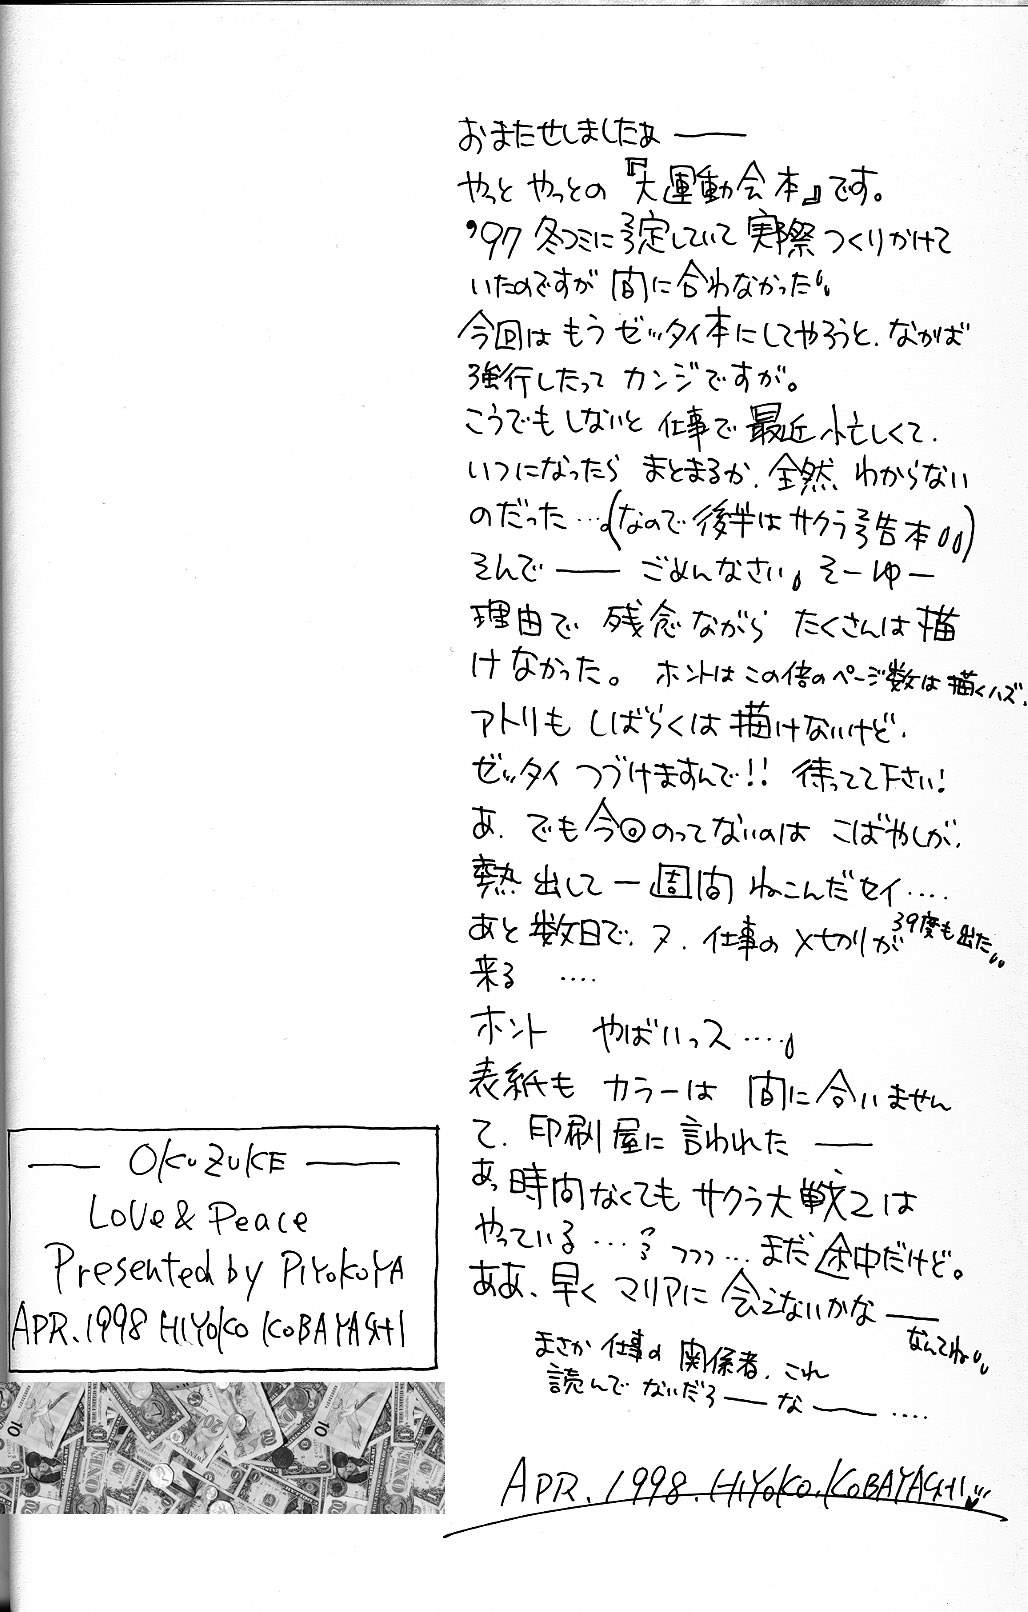 おまたせしましたぁ ――
やっと やっとの『大運動会本』です。
'97 冬コミに予定していて 実際つくりかけて
いたのですが 間に合わなかった
今回は もう ゼッタイ本にしてやろうと、なかば
強行したって カンジですが。
こうでも しないと 仕事で 最近 忙しくて、
いつになったら まとまるか、全然 わからない
のだった…(なので 後半は サクラ予告本)
そんで ―― ごめんなさい そーゆー
理由で 残念ながら たくさんは 描
けなかった。 ホントは この倍のページ数は 描くハズ.
アトリも しばらくは 描けないけど、
ゼッタイ つづけますんで!! 待ってて下さい!
あ、でも 今回 のってないのは こばやしが、
熱出して 一週間 ねこんだセイ‥‥
39度も出た
あと 数日で、ヌ、仕事の 〆切りが
来る ‥‥
ホント やばいっス‥‥
表紙も カラーは 間に合いません
て、印刷屋に 言われた ――
あっ 時間なくても サクラ大戦2は
やっている…? つつつ…まだ途中だけど。
ああ、早く マリアに 会えないかな ――
なんてね
まさか 仕事の 関係者、これ
読んで ないだろ ―― な ―― ‥‥
APR. 1998. HIYOKO. KOBAYASHI
― OKUZUKE ―
Love & Peace
Presented by PIYOKOYA
APR. 1998 HIYOKO KOBAYASHI